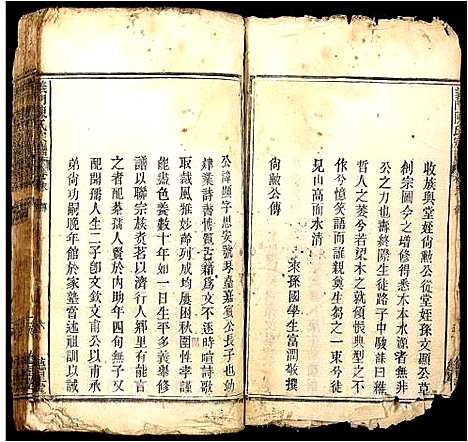 收族與堂姪尙勲公從堂姪孫文顯公草
創宗圖今之增修得悉木本水源者無非
公之力也壽終際生徒路子中駿誄曰雖
哲人之萎兮若梁木之就頹悵典型之不
作兮憶笑語而誰親奠生芻之一束兮徒
見山高而水清
來孫國學生富潤敬撰
尙勲公傳
公諱顯字思安號琴嘉賓公長子也幼
肄業詩書博覽古籍爲文不逐時喧詩歌
取裁風雅妙齡列成均屢困秋闈性孝謹
善色養數十年如一日生平多義舉修
譜以聯宗族賓茗以濟行人鄉里有能言
之者配蔡孺人賢於內助年四旬無子又
配開孺人生二子卽文欽文甫公以承
弟尙功嗣晚年館於家塾嘗述祖訓以誡